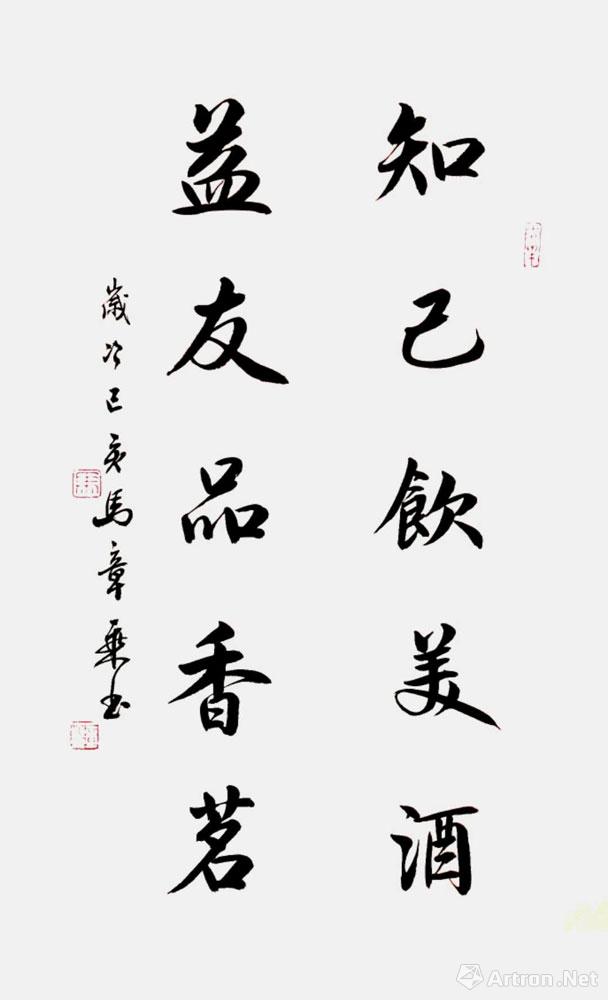 知己飲美酒
益友品香茗
歲次己亥馬章乘书
Artron.Net